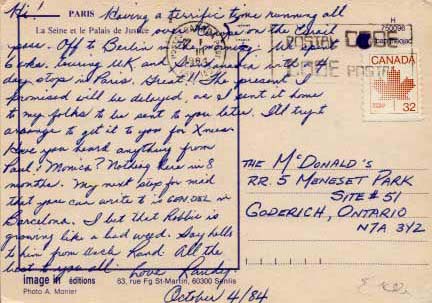 Hi! PARIS Having a terrific time running all
La Seine et le Palais de Justice over Europe on the Eurail
pass. Off to Berlin in the
Eire, touring UK and with a
day stop in Paris. Great!! The present I
promised will be delayed, as I sent it home
to my folks to be sent to you later. I'll try &
arrange to get it to you for Xmas.
Have you heard anything from
Paul? Monica? Nothing here in 8
months. My next stop for mid
that you can write to is
Barcelona. I bet that Robbie is
growing like a bad weed. Say hello
to him from Uncle Rand. All the
best to you all. Love Randy.
October 4/84
image in éditions 63, rue Fg St-Martin, 60300 Senlis
Photo A. Monier
POSTAL CODE
CODE POSTAL
1984
H
750096
CANADA
32
THE McDONALD'S
RR. 5 MENESET PARK
SITE # 51
GODERICH, ONTARIO
N7A 3Y2